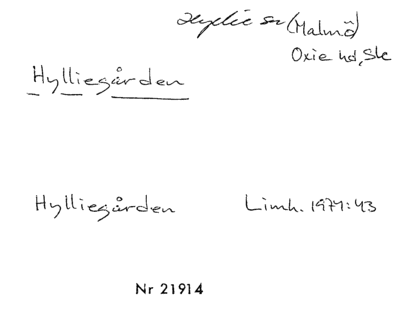 Hyllie sn (Malmö)
Oxie hd, Sk
Hylliegården
Hylliegården Limh. 1974:43
Nr 21914